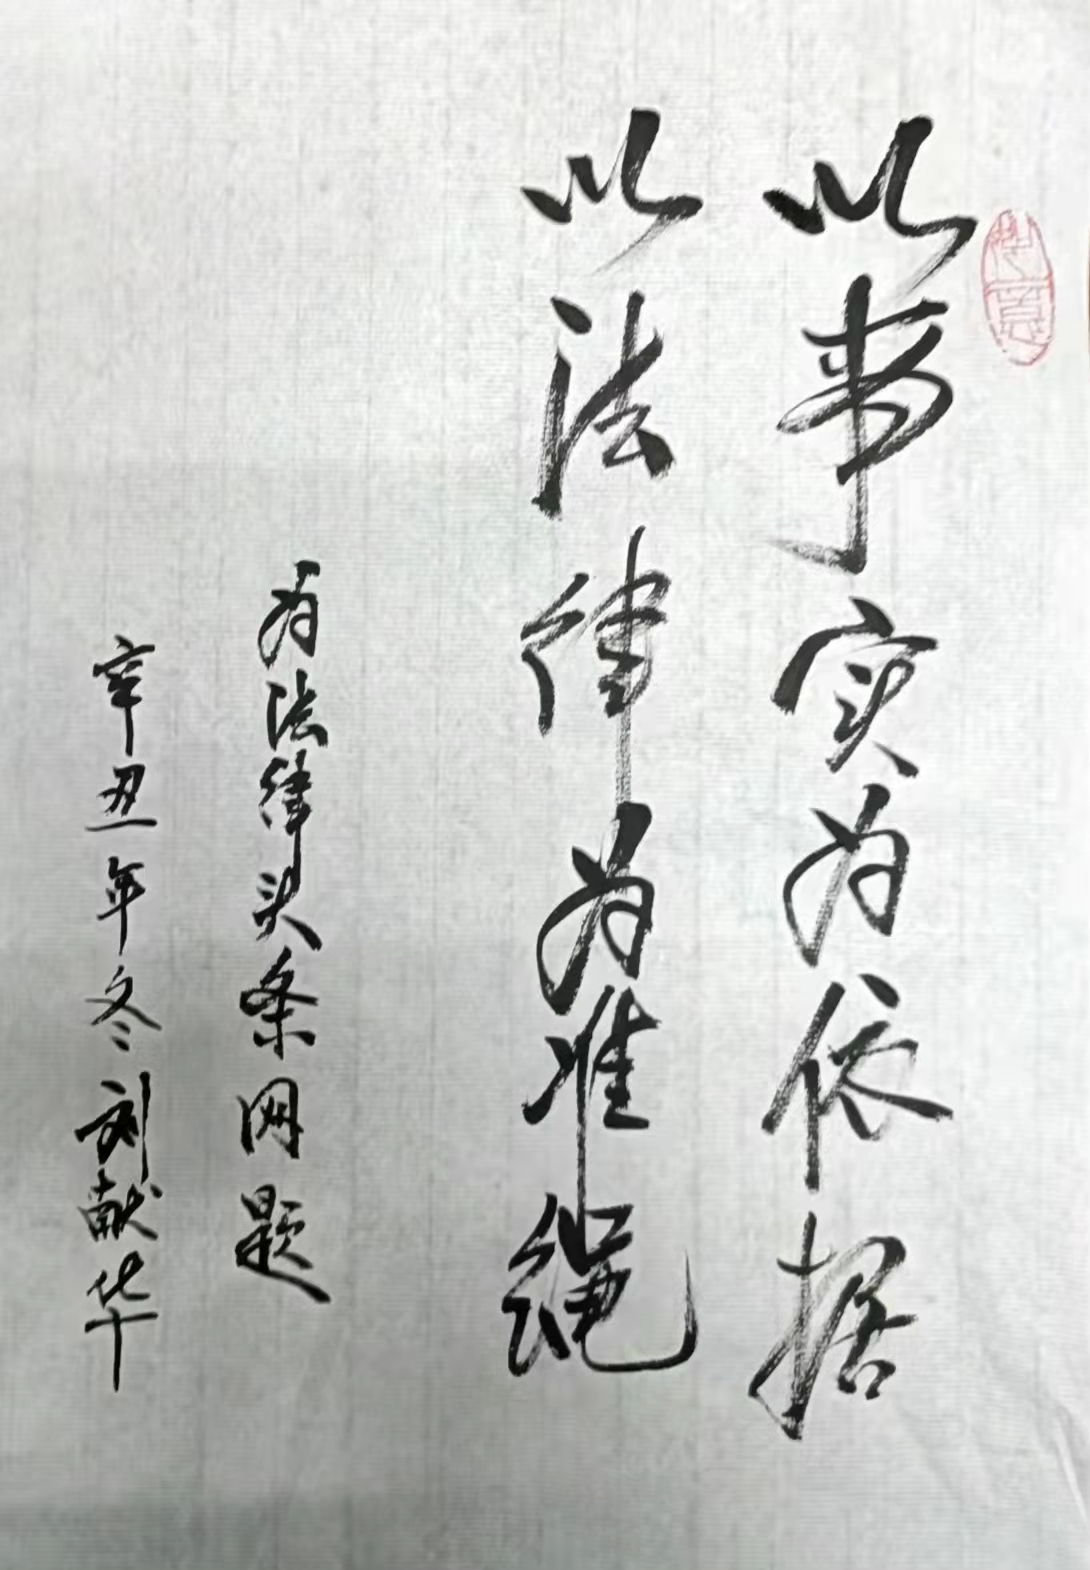 以事实为依据
以法律为准绳
为法律头条网题
辛丑年冬刘献华